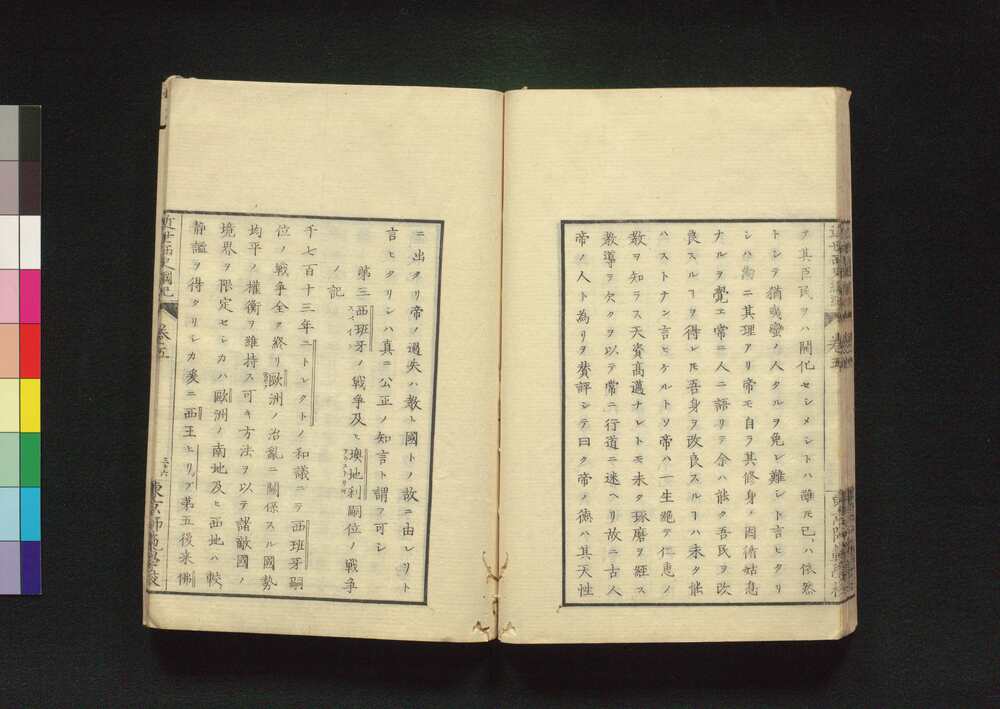 ヲ其臣民ヲハ開化セシメントハ雖𪜈已ハ依然
トシテ猶曵蠻ノ人タルヲ免レ難シト言ヒタリ
シハ洵ニ其理アリ帝モ自ラ其修身ノ因循姑息
ナルヲ覺エ常ニ人ニ語リテ余ハ能ク吾民ヲ改
良スルヿヲ得レ𪜈吾身ヲ改良スルヿハ未タ能
ハストナン言ヒケルトソ帝ハ一生絶テ仁惠ノ
教ヲ知ラス天資高邁ナレトモ未タ琢磨ヲ經ス
教導ヲ欠クヲ以テ常ニ行道ニ迷ヘリ故ニ古人
帝ノ人ト為リヲ賛評シテ曰ク帝ノ德ハ其天性
ニ出タリ帝ノ過失ハ敎ト國トノ故ニ由レリト
言ヒタリシハ真ニ公正ノ知言ト謂フ可シ
第三西班牙ノ戰爭及ヒ墺地利嗣位ノ戰爭
ノ記
千七百十三年ニトレクトノ和議ニテ西班牙嗣
位ノ戰爭全ク終リ歐洲ノ治亂ニ關係スル國勢
均平ノ權衡ヲ維持ス可キ方法ヲ以テ諸敵國ノ
境界ヲ限定セシカハ歐洲ノ南地及ヒ西地ハ較
靜謐ヲ得タリシカ爰ニ西王ヒリップ第五後来佛
近世西史綱紀
卷五
三十六
東京師範學校